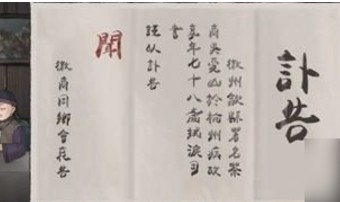 訃告
徽州歙縣署名茶
商吳愛山於杭州病故
享年七十八歲拭淚引
書
謹以訃告
聞
徽商同鄉會花告